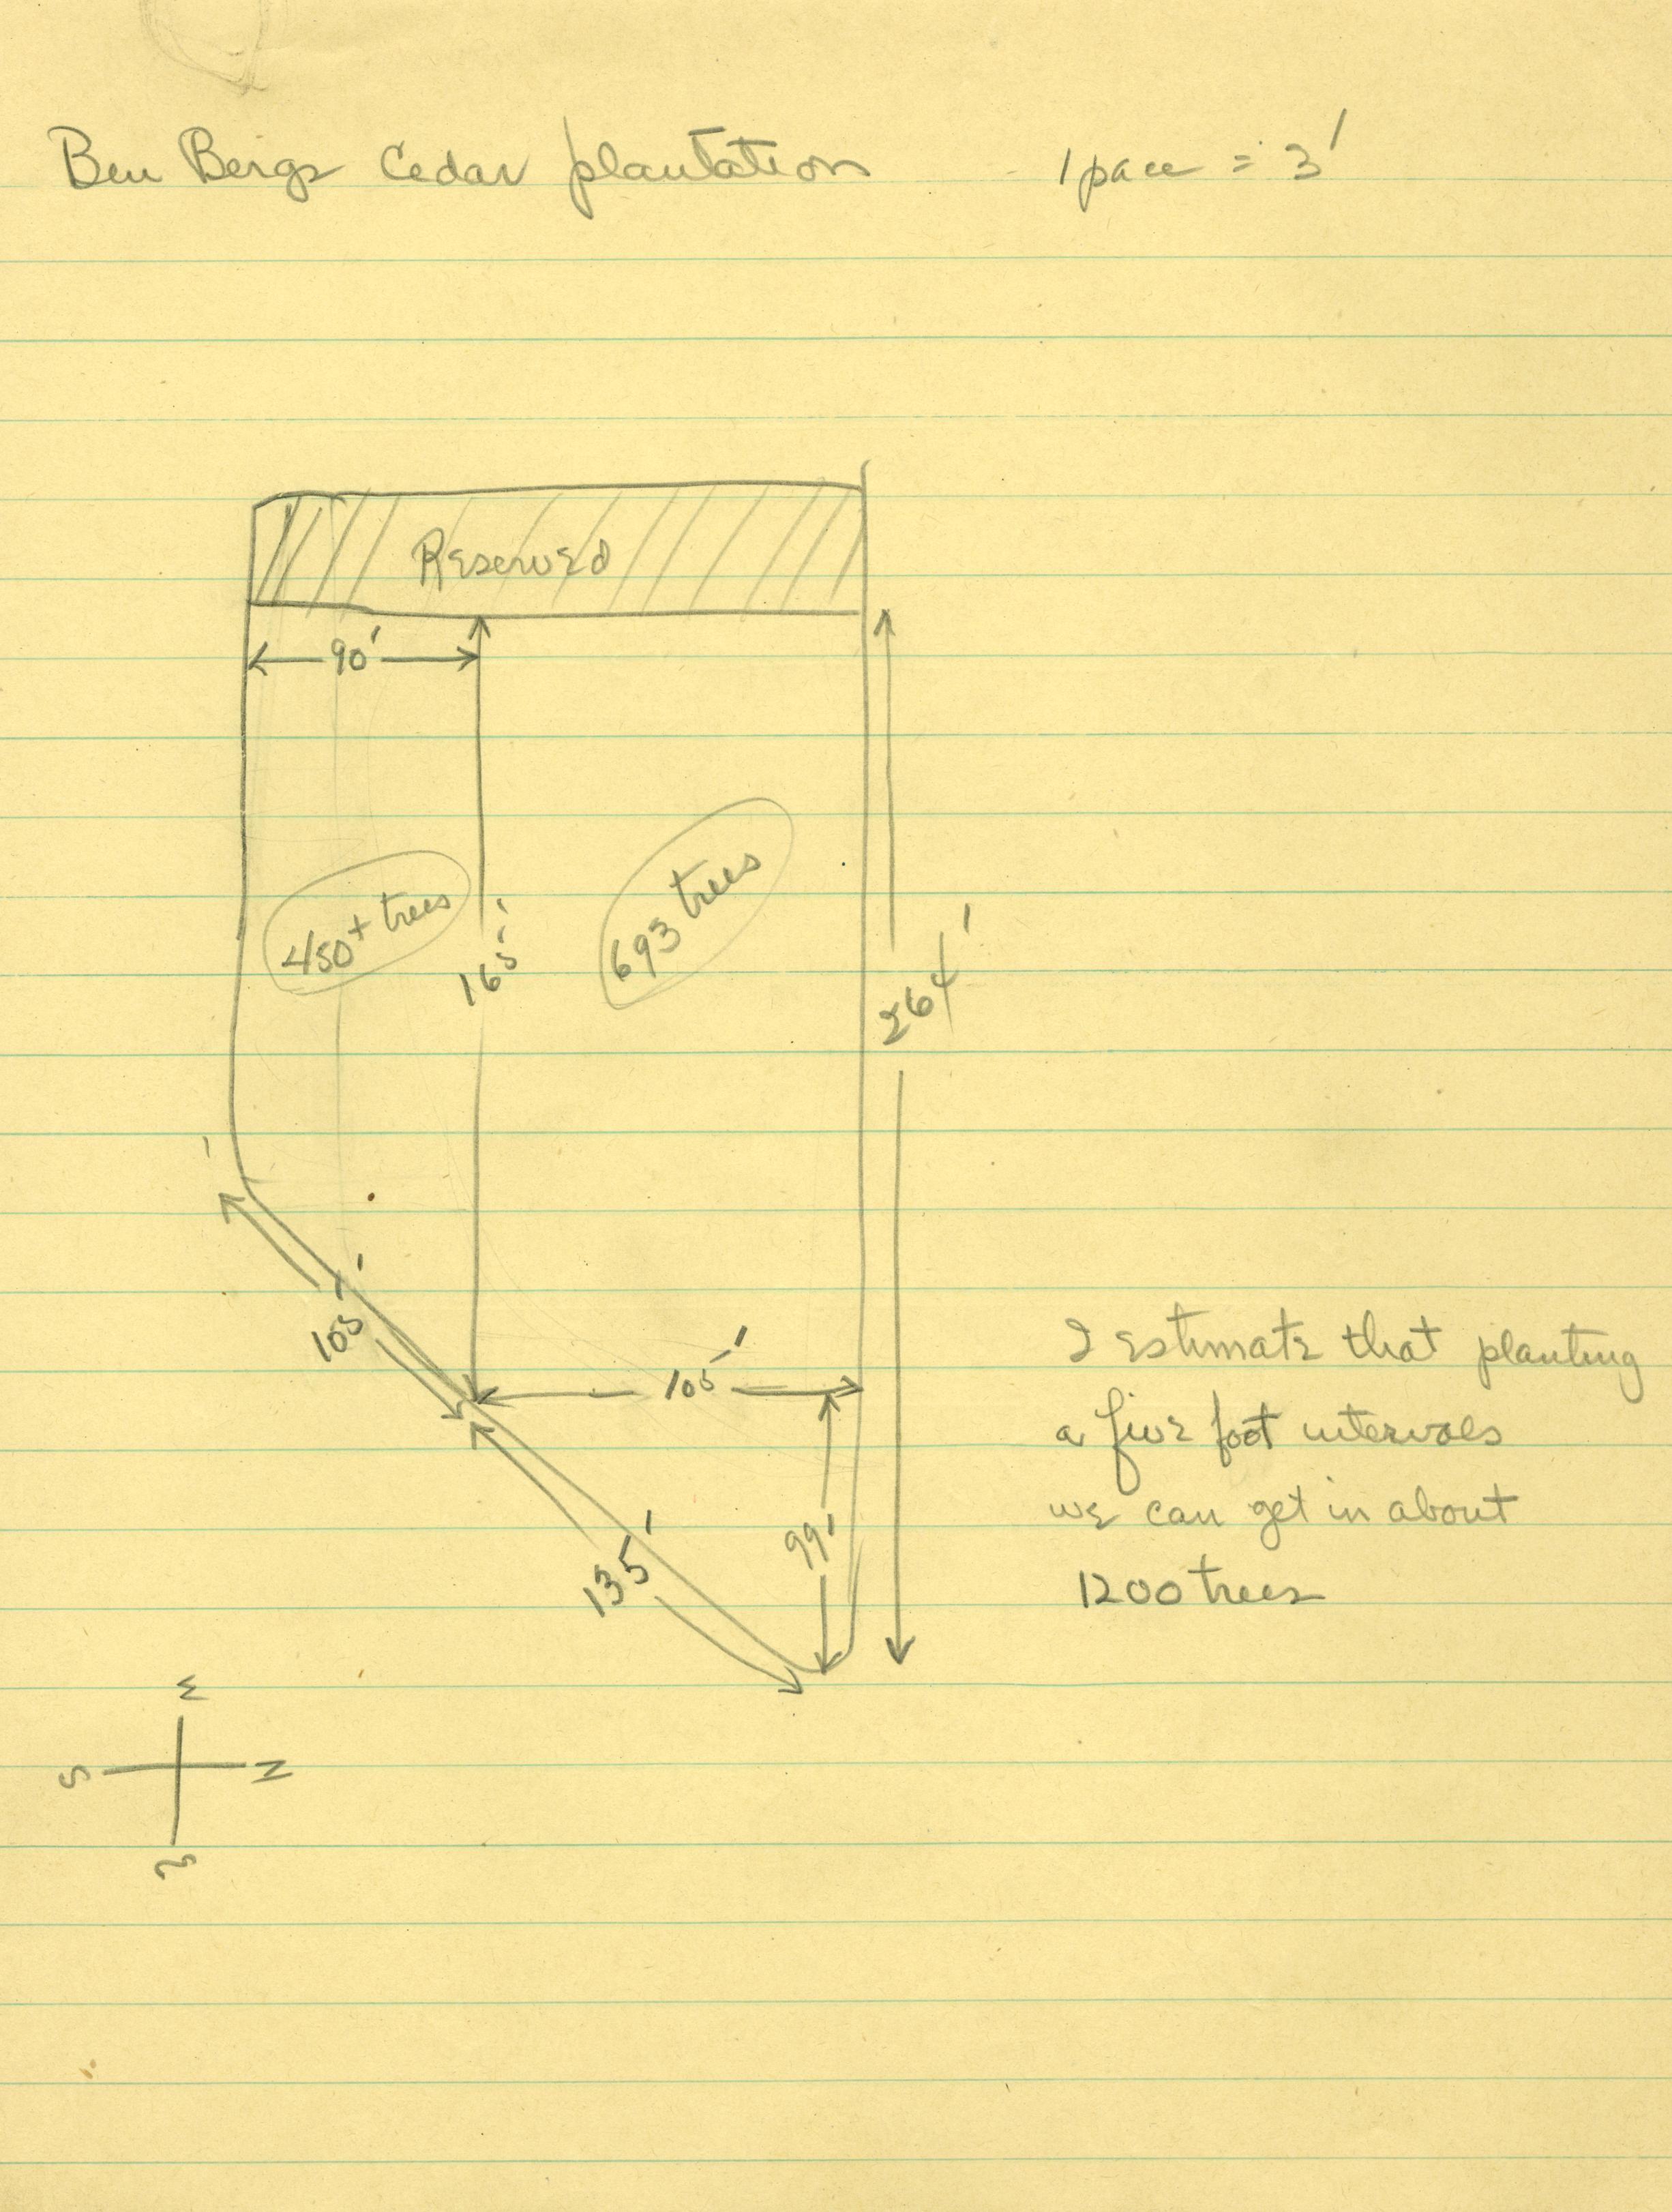 Ben Bergs Cedar plantation
1 pace = 3'
Reserved
90'
450+ trees
165'
693 trees
264'
105'
105'
135'
99'
I estimate that planting
a five foot intervals
we can get in about
1200 trees
W
S N
E